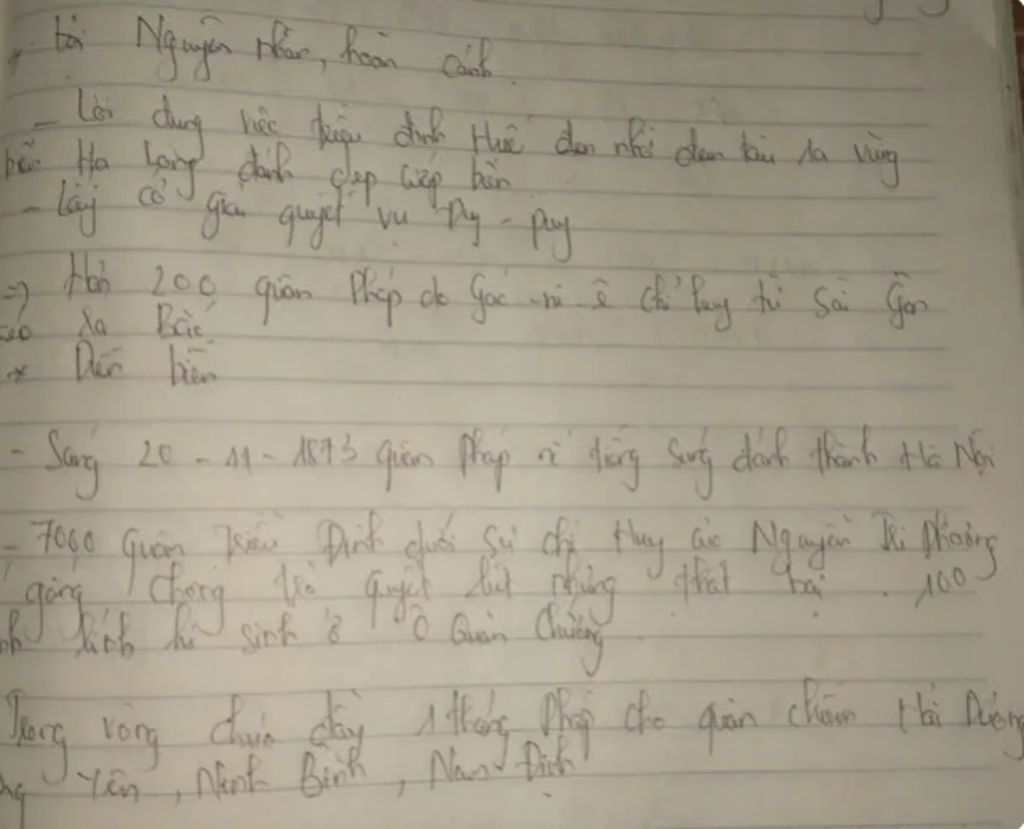 * Nguyên nhân, hoàn cảnh.
- Lợi dụng việc triều đình Huế đem tàu ra vùng
biển Hạ Long đánh dẹp cướp biển
- Lấy cớ giải quyết vụ Đuy - puy
=> Hơn 200 quân Pháp do Gác-ni-ê chỉ huy từ Sài Gòn
kéo ra Bắc
* Diễn biến
- Sáng 20-11-1873 quân Pháp nổ tiếng súng đánh thành Hà Nội
- 7000 quân triều Đình dưới sự chỉ Huy Nguyễn Tri Phương
gắng chống trả quyết liệt nhưng thất bại. 100
binh lính hi sinh ở Ô Quan Chưởng
Trong vòng chưa đầy 1 tháng Pháp cho quân chiếm Hải Dương
Yên, Ninh Bình, Nam Định